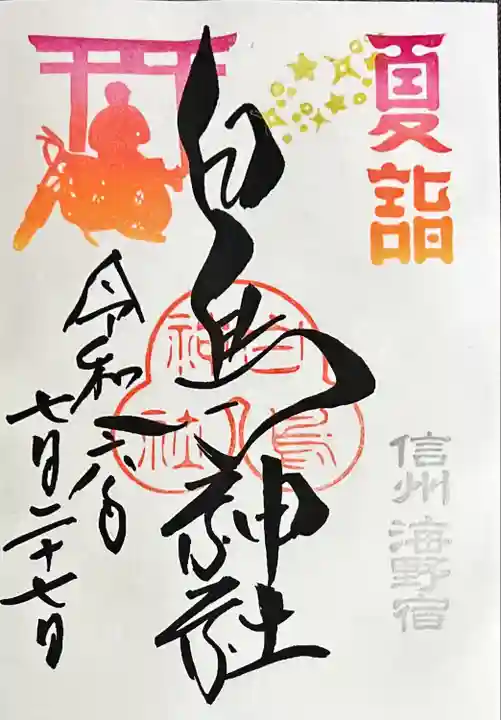 夏詣
信州 海野宿
白鳥神社
白鳥神社
令和六年
七月二十七日